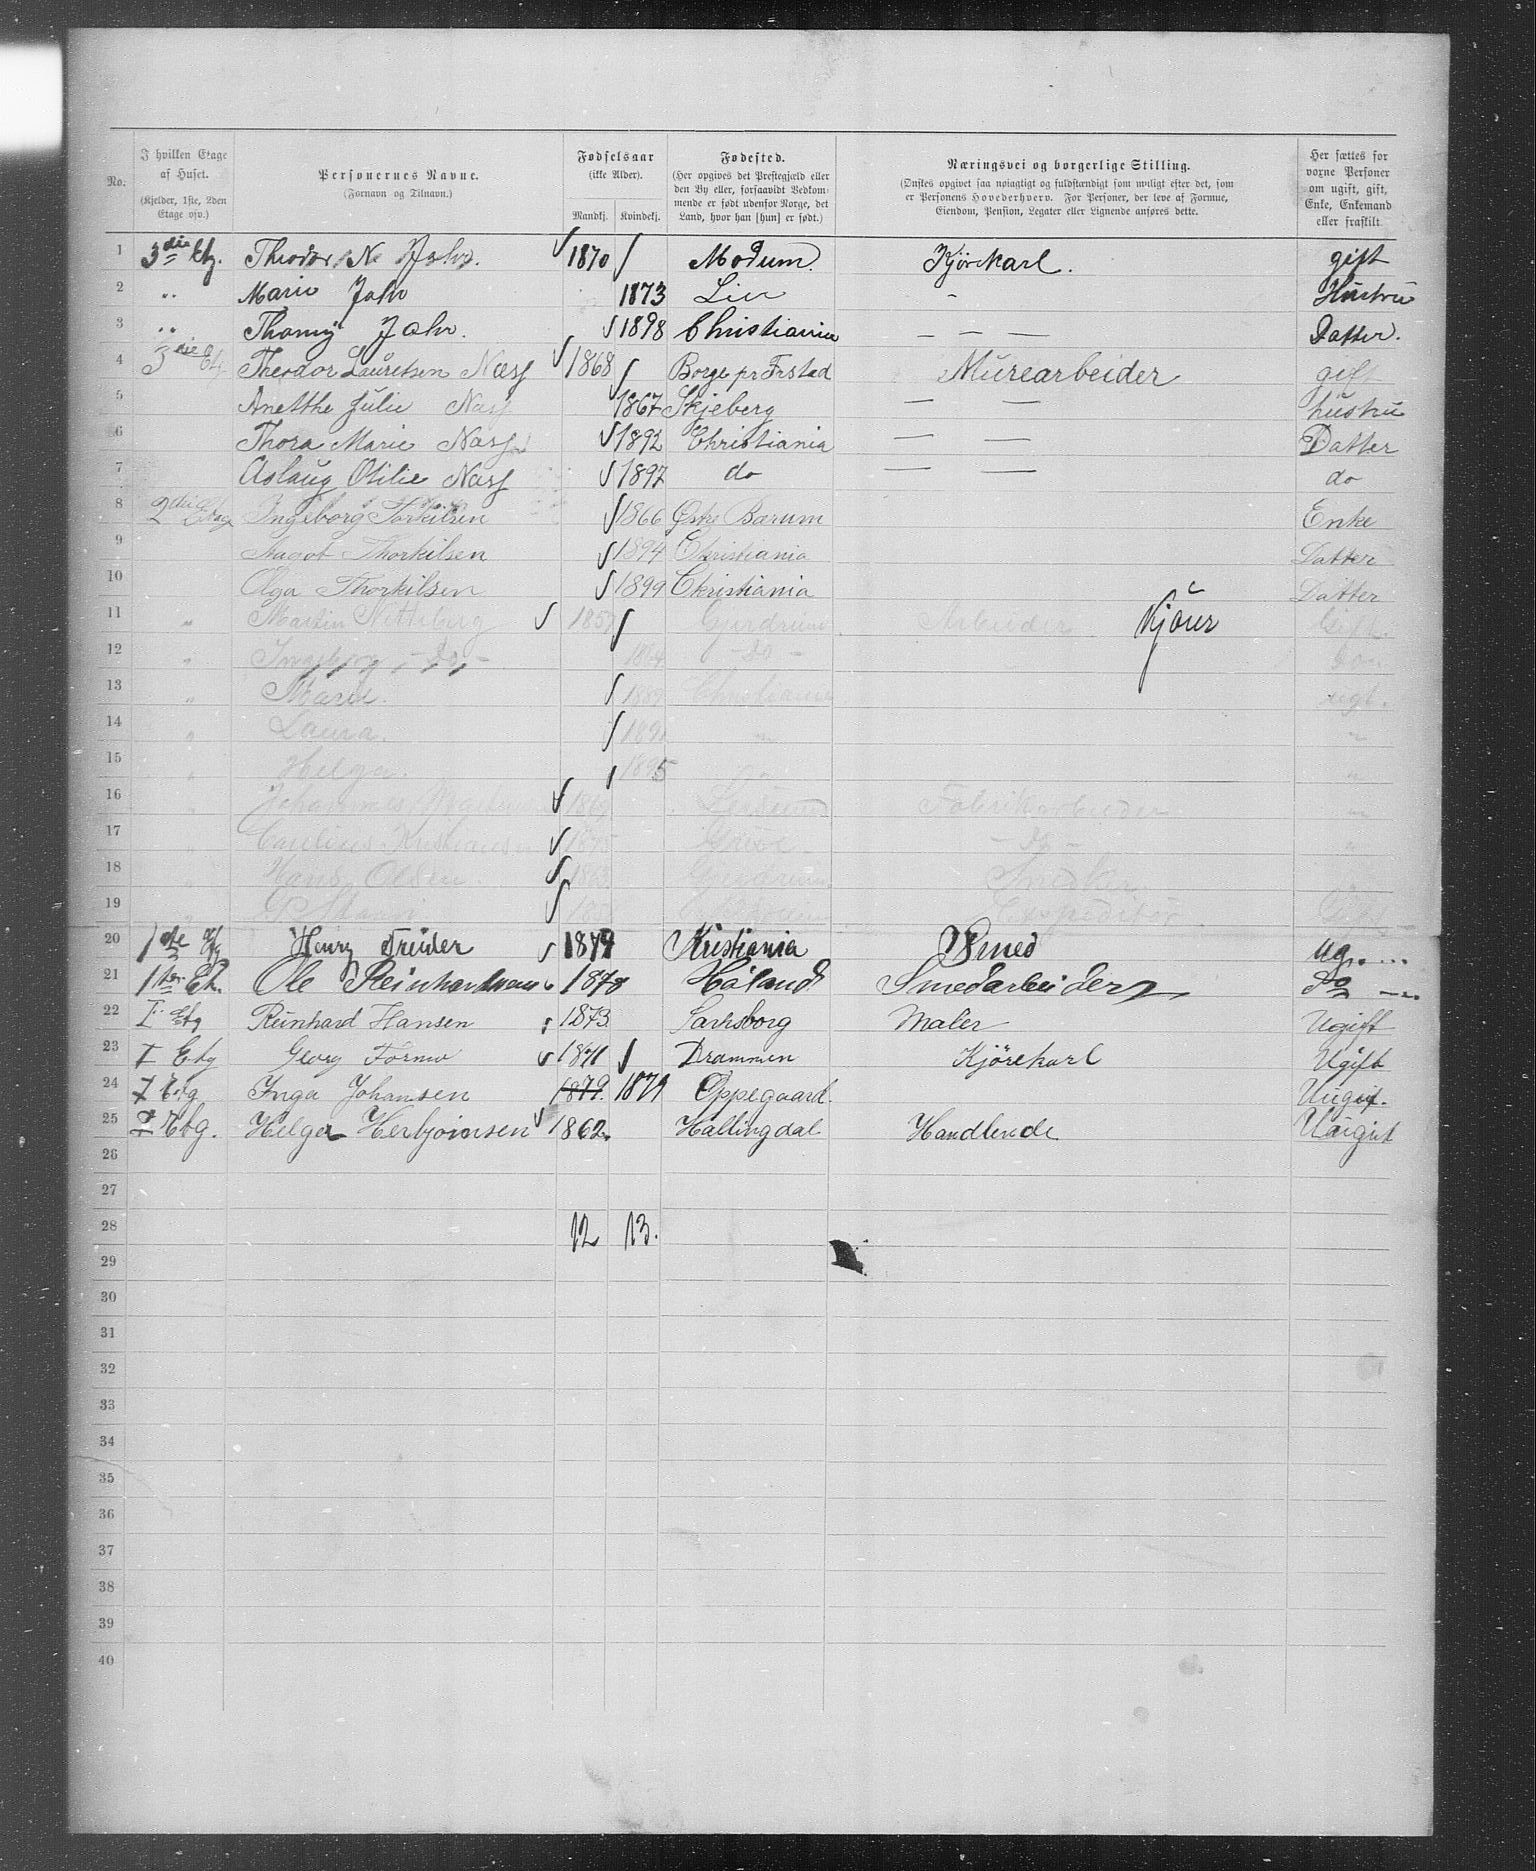 No.
I hvilken Etage af Huset. (Kjelder, 1ste, 2den Etage osv.)
Personernes Navne. (Fornavn og Tilnavn.)
Fødselsaar (ikke Alder). Mandkj. Kvindekj.
Fødested. (Her opgives det Prestegjæld eller den By eller, forsaavidt Vedkommende er født udenfor Norge, det Land, hvor han [hun] er født.)
Næringsvei og borgerlige Stilling. (Ønskes opgivet saa nøiagtigt og fuldstændigt som muligt efter det, som er Personens Hovederhverv. For Personer, der leve af Formue, Eiendom, Pension, Legater eller Lignende anføres dette.
Her sættes for voxne Personer om ugift, gift, Enke, Enkemand eller fraskilt.
1 3die Etg. Theodor N Jahr. 1870 Modum. Kjørekarl. gift
2 " Marie Jahr 1873 Lier - Hustru
3 " Thomy Jahr. 1898 Christiania — — — Datter.
4 3die Etg Theodor Lauritsen Næss 1868 Borge pr Frstad Murearbeider gift
5 Anetthe Julie Næss 1867 Skjeberg — — hustru
6 Thora Marie Næss 1892 Christiania — — Datter
7 Aslaug Otilie Næss 1897 do — — do
8 2den Etage Ingeborg Torkilsen 1866 Østre Bærum Enke
9 Aagot Thorkilsen 1894 Christiania Datter
10 Olga Thorkilsen 1899 Christiania Datter
11 " Martin 185 Gjerdrum Arbeider Kjører Gift.
12 " Ingeborg - do - 1864 - do -
13 " Marie. 188 Christiania ugt.
14 " Laura. 189 " "
15 " Helga. 1895 "
16 " Johannes 186 Fabrikarbeider "
17 " Kristiansen 1875 - do - "
18 " Hans Olsen. 1863 Gjerdrum Snedker "
19 " 185 Expeditør
20 1ste Etg Henry Treider 1879 Kristiania Smed ug....
21 1ste Et. Ole Reinhardtsen 1878 Høland Smedarbeider do
22 I Etg Reinhard Hansen 1873 Sarpsborg Maler Ugift
23 I Etg Georg Formo 1871 Drammen Kjørekarl Ugift
24 I Etg Inga Johansen 1879. 1879 Oppegaard. Uugift.
25 I Etg. Helger Herbjørnsen 1862. Hallingdal Handlende Uugift
26
27
28 12 13.
29
30
31
32
33
34
35
36
37
38
39
40